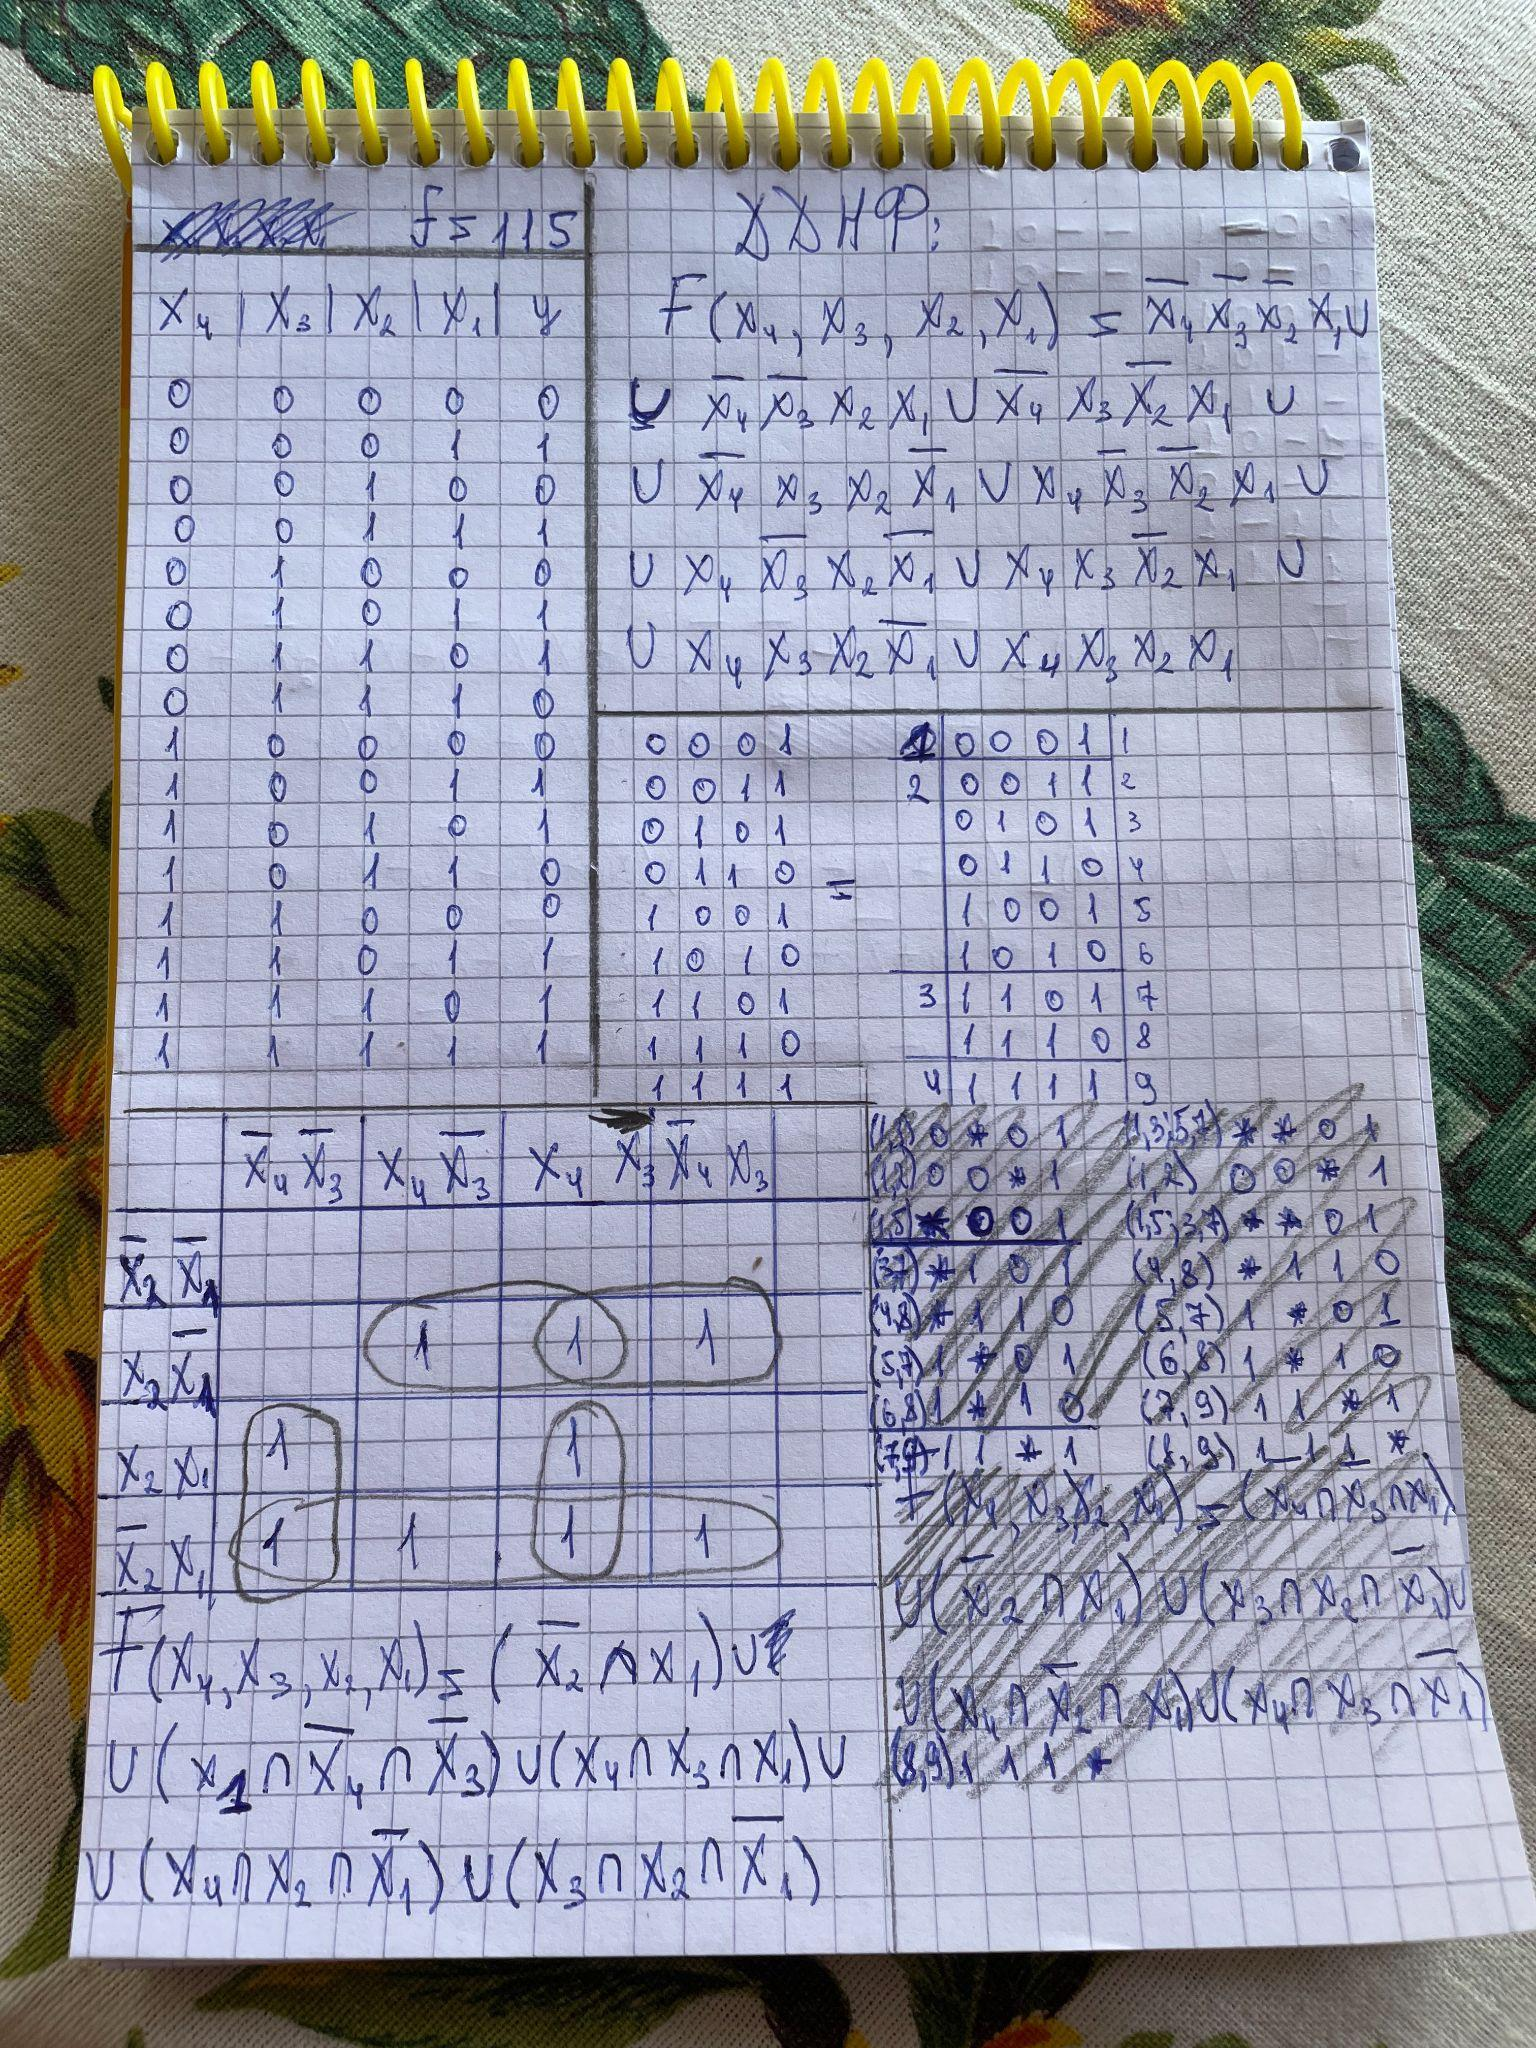 f = 115
X₄ | X₃ | X₂ | X₁ | y
0 0 0 0 0
0 0 0 1 1
0 0 1 0 0
0 0 1 1 1
0 1 0 0 0
0 1 0 1 1
0 1 1 0 1
0 1 1 1 0
1 0 0 0 0
1 0 0 1 1
1 0 1 0 1
1 0 1 1 0
1 1 0 0 0
1 1 0 1 1
1 1 1 0 1
1 1 1 1 1
ДДНФ:
F(X₄, X₃, X₂, X₁) = X̅₄ X̅₃ X̅₂ X₁ U
U X̅₄ X̅₃ X₂ X₁ U X̅₄ X₃ X̅₂ X₁ U
U X̅₄ X₃ X₂ X̅₁ U X₄ X̅₃ X̅₂ X₁ U
U X₄ X̅₃ X₂ X̅₁ U X₄ X₃ X̅₂ X₁ U
U X₄ X₃ X₂ X̅₁ U X₄ X₃ X₂ X₁
0 0 0 1
0 0 1 1
0 1 0 1
0 1 1 0 =
1 0 0 1
1 0 1 0
1 1 0 1
1 1 1 0
1 1 1 1
1 0 0 0 1 1
2 0 0 1 1 2
0 1 0 1 3
0 1 1 0 4
1 0 0 1 5
1 0 1 0 6
3 1 1 0 1 7
1 1 1 0 8
4 1 1 1 1 9
X̅₄ X̅₃ X₄ X̅₃ X₄ X₃ X̅₄ X₃
X̅₂ X̅₁
X₂ X̅₁ 1 1 1
X₂ X₁ 1 1
X̅₂ X₁ 1 1 1 1
F(X₄, X₃, X₂, X₁) = (X̅₂ ∩ X₁) U
U (X₁ ∩ X̅₄ ∩ X̅₃) U (X₄ ∩ X₃ ∩ X₁) U
U (X₄ ∩ X₂ ∩ X̅₁) U (X₃ ∩ X₂ ∩ X̅₁)
0 * 0 1 (1,3;5,7) * * 0 1
(1,2) 0 0 * 1 (1,2) 0 0 * 1
(1,5) * 0 0 1 (1,5;3,7) * * 0 1
(3,7) * 1 0 1 (4,8) * 1 1 0
(4,8) * 1 1 0 (5,7) 1 * 0 1
(5,7) 1 * 0 1 (6,8) 1 * 1 0
(6,8) 1 * 1 0 (7,9) 1 1 * 1
(7,9) 1 1 * 1 (8,9) 1 1 1 *
F(X₄, X₃, X₂, X₁) = (X₄ ∩ X₃ ∩ X₁)
U (X̅₂ ∩ X₁) U (X₃ ∩ X₂ ∩ X̅₁) U
U (X₄ ∩ X̅₂ ∩ X₁) U (X₄ ∩ X₃ ∩ X̅₁)
(8,9) 1 1 1 *